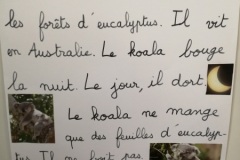 les forêts d'eucalyptus. Il vit
en Australie. Le koala bouge
la nuit. Le jour, il dort.
Le koala ne mange
que des feuilles d'eucalyp-
tus. Il ne boit pas.